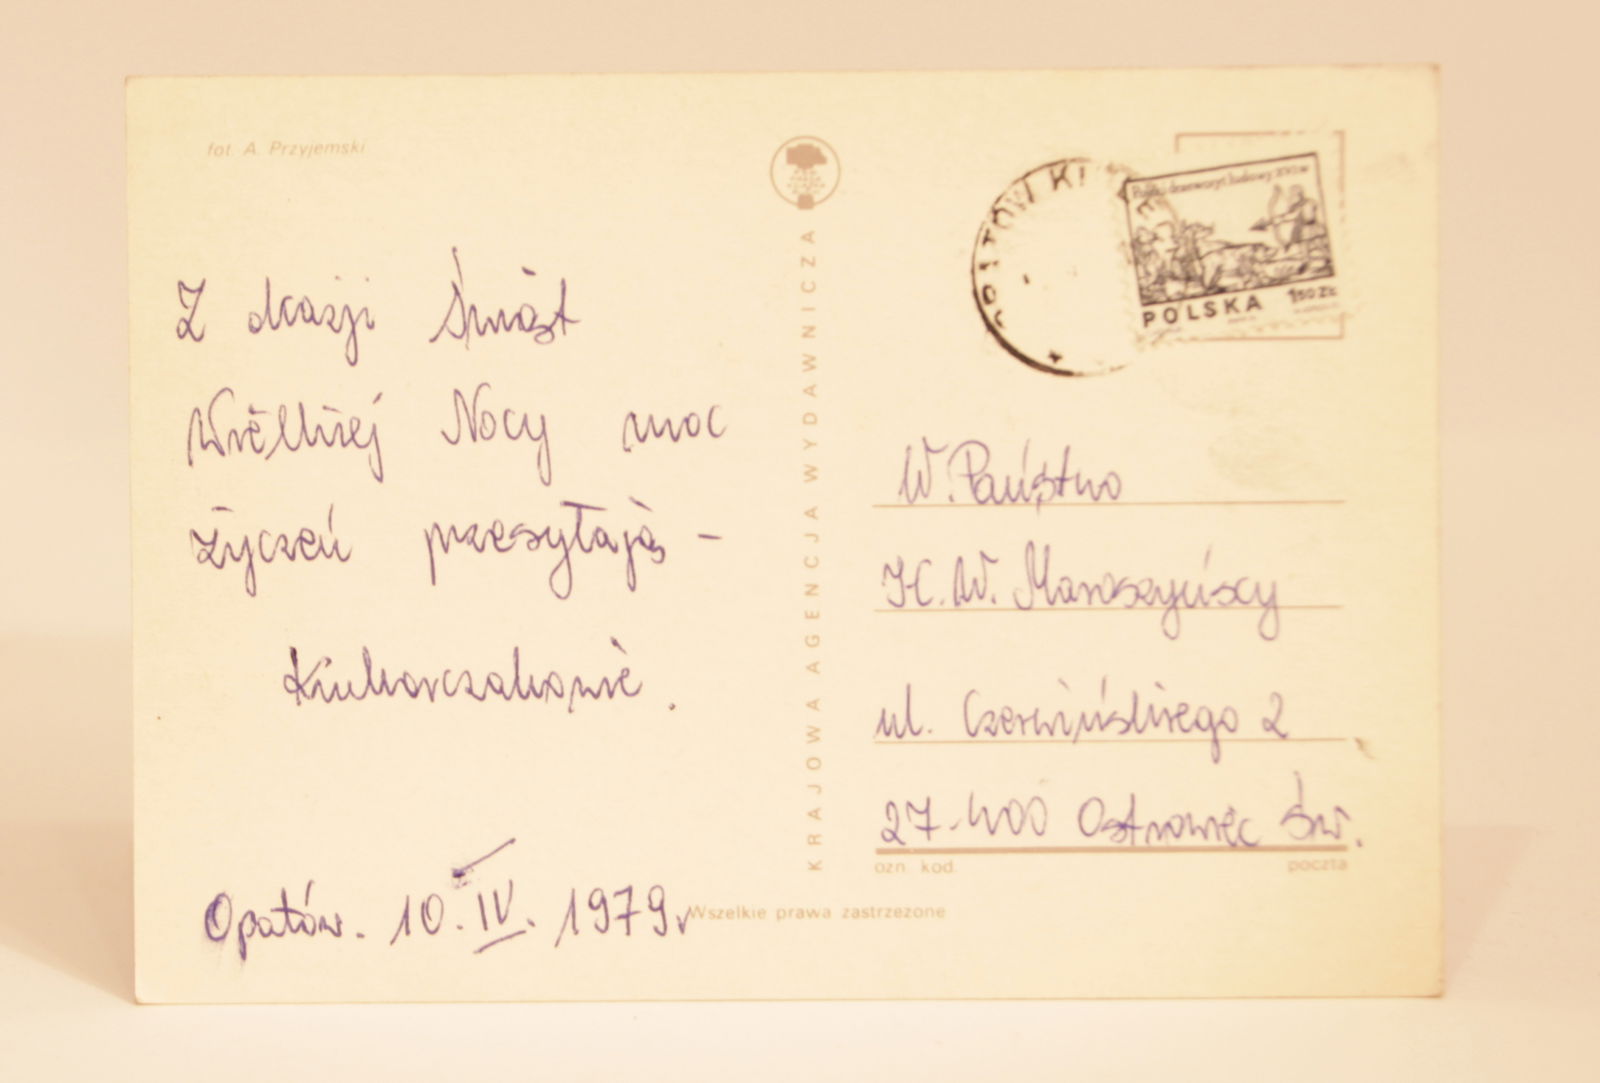 fot. A. Przyjemski
Z okazji Świąt
Wielkiej Nocy moc
życzeń przesyłają –
Kucharczakowie.
Opatów. 10. IV. 1979r
KRAJOWA AGENCJA WYDAWNICZA
Wszelkie prawa zastrzeżone
Polski drzeworyt ludowy XVI w
POLSKA 150 ZŁ
W. Państwo
H. W. Maroszyńscy
ul. Czerwińskiego 2
27-400 Ostrowiec Św.
ozn. kod. poczta